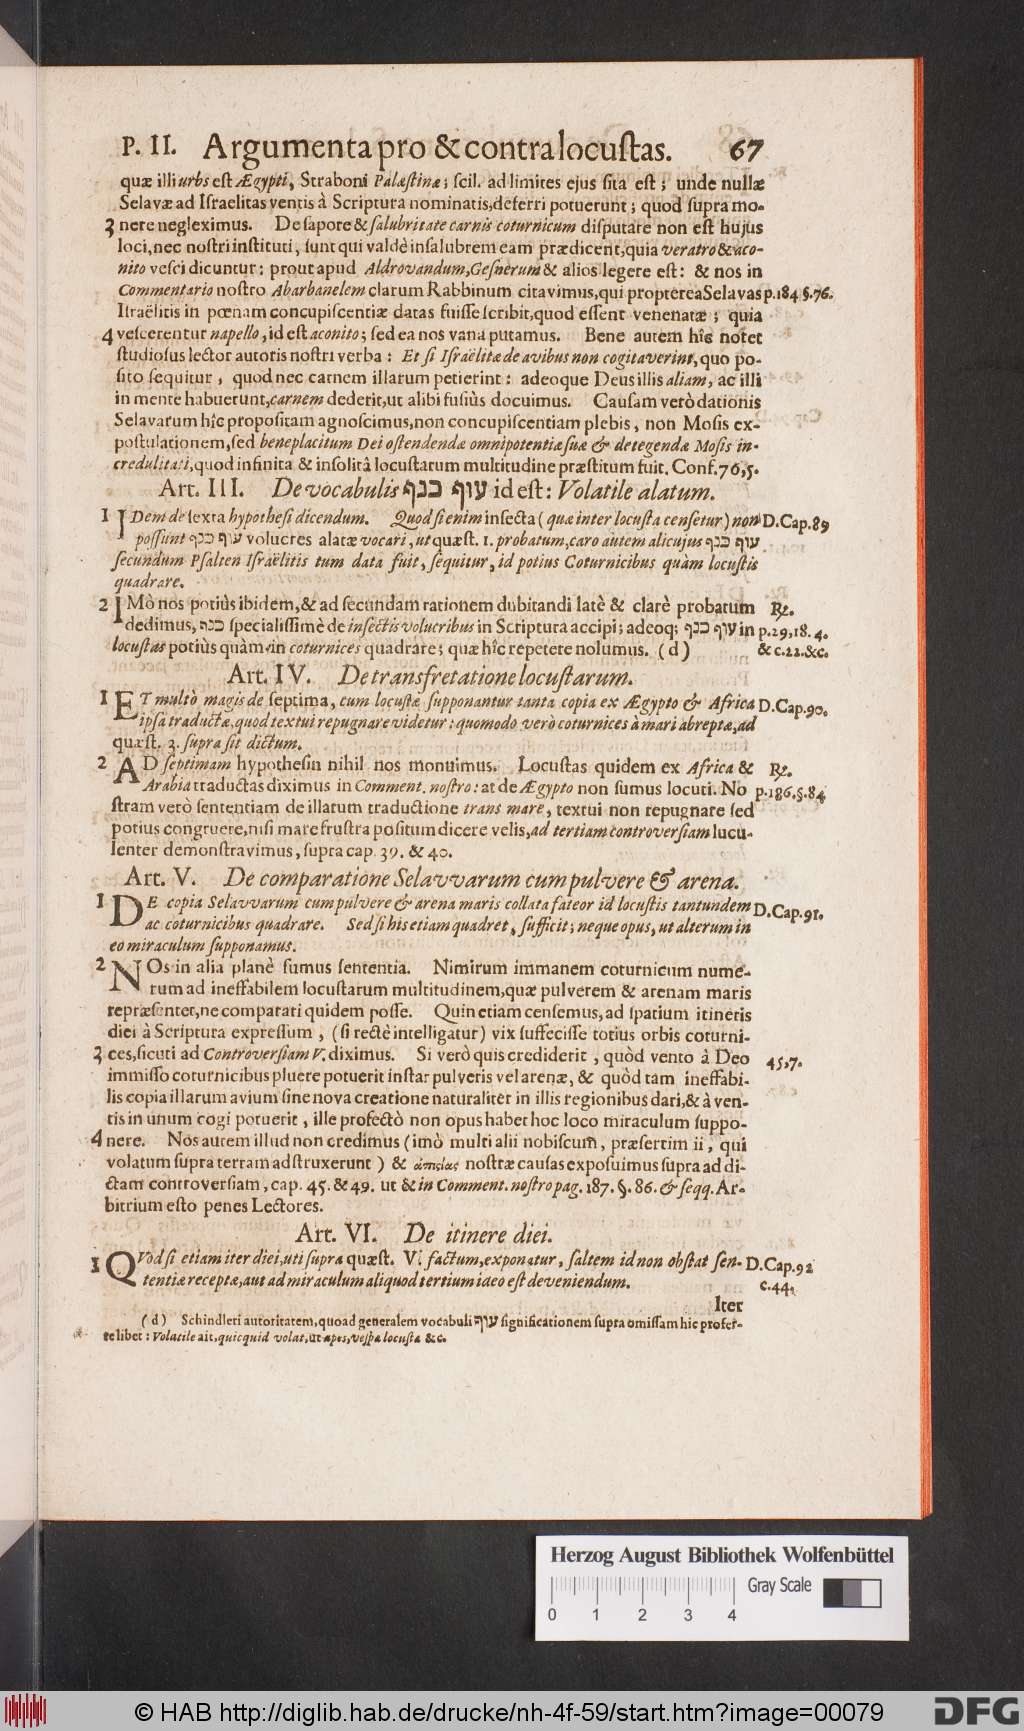 P. II. Argumenta pro & contra locuſtas. 67
quæ illi urbs eſt Ægypti, Straboni Palæſtinæ; ſcil. ad limites ejus ſita eſt; unde nullæ
Selavæ ad Iſraelitas ventis â Scriptura nominatis, deferri potuerunt; quod ſupra mo-
3 nere negleximus. De ſapore & ſalubritate carnis coturnicum diſputare non eſt hujus
loci, nec noſtri inſtituti, ſunt qui valdè inſalubrem eam prædicent, quia veratro & aco-
nito veſci dicuntur: prout apud Aldrovandum, Geſnerum & alios legere eſt: & nos in
Commentario noſtro Abarbanelem clarum Rabbinum citavimus, qui propterea Selavas p.184 §.76.
Iſraëlitis in pœnam concupiſcentiæ datas fuiſſe ſcribit, quod eſſent venenatæ; quia
4 veſcerentur napello, id eſt aconito; ſed ea nos vana putamus. Bene autem hîc notet
ſtudioſus lector autoris noſtri verba: Et ſi Iſraëlitæ de avibus non cogitaverint, quo po-
ſito ſequitur, quod nec carnem illarum petierint: adeoque Deus illis aliam, ac illi
in mente habuerunt, carnem dederit, ut alibi fuſiùs docuimus. Cauſam verò dationis
Selavarum hîc propoſitam agnoſcimus, non concupiſcentiam plebis, non Moſis ex-
poſtulationem, ſed beneplacitum Dei oſtendendæ omnipotentiæ ſuæ & detegendæ Moſis in-
credulitati, quod infinita & inſolitâ locuſtarum multitudine præſtitum fuit. Conf. 76, 5.
Art. III. De vocabulis עוף כנף id eſt: Volatile alatum.
1 IDem de ſexta hypotheſi dicendum. Quod ſi enim inſecta (quæ inter locuſta cenſetur) non D. Cap. 89
poſſunt עוף כנף volucres alatæ vocari, ut quæſt. 1. probatum, caro autem alicujus עוף כנף
ſecundum Pſalten Iſraëlitis tum data fuit, ſequitur, id potius Coturnicibus quàm locuſtis
quadrare.
2 IMò nos potiùs ibidem, & ad ſecundam rationem dubitandi latè & clarè probatum ℞.
dedimus, כנף ſpecialiſſimè de inſectis volucribus in Scriptura accipi; adeoq; עוף כנף in p.29, 18. 4.
locuſtas potiùs quàm in coturnices quadrare; quæ hîc repetere nolumus. (d) & c.22. &c.
Art. IV. De transfretatione locuſtarum.
1 ET multò magis de ſeptima, cum locuſtæ ſupponantur tanta copia ex Ægypto & Africa D. Cap. 90.
ipſa traductæ, quod textui repugnare videtur: quomodo verò coturnices à mari abreptæ, ad
quæſt. 3. ſupra ſit dictum.
2 AD ſeptimam hypotheſin nihil nos monuimus. Locuſtas quidem ex Africa & ℞.
Arabia traductas diximus in Comment. noſtro: at de Ægypto non ſumus locuti. No p.186. §. 84
ſtram verò ſententiam de illarum traductione trans mare, textui non repugnare ſed
potius congruere, niſi mare fruſtra poſitum dicere velis, ad tertiam controverſiam lucu-
lenter demonſtravimus, ſupra cap. 39. & 40.
Art. V. De comparatione Selavvarum cum pulvere & arena.
1 DE copia Selavvarum cum pulvere & arena maris collata fateor id locuſtis tantundem D. Cap. 91.
ac coturnicibus quadrare. Sed ſi his etiam quadret, ſufficit; neque opus, ut alterum in
eo miraculum ſupponamus.
2 NOs in alia planè ſumus ſententia. Nimirum immanem coturnicum nume-
rum ad ineffabilem locuſtarum multitudinem, quæ pulverem & arenam maris
repræſentet, ne comparari quidem poſſe. Quin etiam cenſemus, ad ſpatium itineris
diei à Scriptura expreſſum, (ſi rectè intelligatur) vix ſuffeciſſe totius orbis coturni-
3 ces, ſicuti ad Controverſiam V. diximus. Si verò quis crediderit, quòd vento à Deo 45, 7.
immiſſo coturnicibus pluere potuerit inſtar pulveris vel arenæ, & quòd tam ineffabi-
lis copia illarum avium ſine nova creatione naturaliter in illis regionibus dari, & à ven-
tis in unum cogi potuerit, ille profectò non opus habet hoc loco miraculum ſuppo-
4 nere. Nos autem illud non credimus (imò multi alii nobiſcum, præſertim ii, qui
volatum ſupra terram adſtruxerunt) & ἀπιςίας noſtræ cauſas expoſuimus ſupra ad di-
ctam controverſiam, cap. 45. & 49. ut & in Comment. noſtro pag. 187. §. 86. & ſeqq. Ar-
bitrium eſto penes Lectores.
Art. VI. De itinere diei.
1 QVod ſi etiam iter diei, uti ſupra quæſt. V. factum, exponatur, ſaltem id non obſtat ſen- D. Cap. 92
tentiæ receptæ, aut ad miraculum aliquod tertium ideo eſt deveniendum. c. 44.
Iter
(d) Schindleri autoritatem, quoad generalem vocabuli עוף ſignificationem ſupra omiſſam hic profer-
re libet: Volatile ait, quicquid volat, ut apes, veſpæ locuſta &c.
Herzog August Bibliothek Wolfenbüttel
Gray Scale
0 1 2 3 4
© HAB http://diglib.hab.de/drucke/nh-4f-59/start.htm?image=00079
DFG